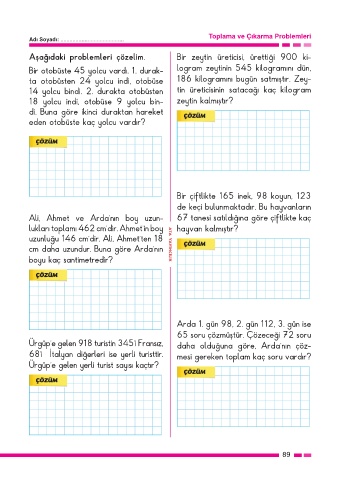 Adı Soyadı: ................................
Toplama ve Çıkarma Problemleri
Aşağıdaki problemleri çözelim.
Bir otobüste 45 yolcu vardı. 1. durak-
ta otobüsten 24 yolcu indi, otobüse
14 yolcu bindi. 2. durakta otobüsten
18 yolcu indi, otobüse 9 yolcu bin-
di. Buna göre ikinci duraktan hareket
eden otobüste kaç yolcu vardır?
ÇÖZÜM
Ali, Ahmet ve Arda'nın boy uzun-
lukları toplamı 462 cm'dir. Ahmet'in boy
uzunluğu 146 cm'dir. Ali, Ahmet'ten 18
cm daha uzundur. Buna göre Arda'nın
boyu kaç santimetredir?
ÇÖZÜM
Ürgüp'e gelen 918 turistin 345'i Fransız,
681 İtalyan diğerleri ise yerli turisttir.
Ürgüp'e gelen yerli turist sayısı kaçtır?
ÇÖZÜM
Bir zeytin üreticisi, ürettiği 900 ki-
logram zeytinin 545 kilogramını dün,
186 kilogramını bugün satmıştır. Zey-
tin üreticisinin satacağı kaç kilogram
zeytin kalmıştır?
ÇÖZÜM
Bir çiftlikte 165 inek, 98 koyun, 123
de keçi bulunmaktadır. Bu hayvanların
67 tanesi satıldığına göre çiftlikte kaç
hayvan kalmıştır?
ÇÖZÜM
Arda 1. gün 98, 2. gün 112, 3. gün ise
65 soru çözmüştür. Çözeceği 72 soru
daha olduğuna göre, Arda'nın çöz-
mesi gereken toplam kaç soru vardır?
ÇÖZÜM
89